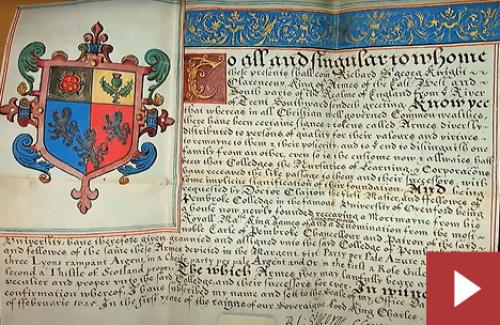 To all and singular to whome
these presents shall com Richard St george Knight
Clarenceux King of Armes of the East West and
South parts of the Realme of England from ye River
of Trent Southward sendeth greeting Know yee
that whereas in all Christian well governed Common-wealthes
there have been certaine signes & tokens called Armes diversly
distributed to persons of quality for their valours and vertues
remaine to them & their posterity and to
family from an other, even so is the custome now & allwaies hath
been that Colledges the Nurseries of Learning, & Corporacons
have received the like passage to them and their successors, with
some implicite signification of their foundation And being
requested by Doctor Clayton the first Master, and fellowes of
Pembroke Colledge in the famous University of Oxenford being
a house now newly founded receaving a Mortmaine from his
Royall Matie King James of and a denomination from the most
noble Earle of Pembroke Chancellor and Patron of the said
University, have therefore given granted and assigned unto the said Colledge of Pembroke
and fellowes of the same these Armes depicted in the Margent vizt Party per pale Azure and
three Lyons rampant Argent, in a Cheife party per pale Argent and Or in the first a Rose Gules
second a Thistle of Scotland proper The which Armes they may lawfully beare as
peculiar and proper with the said Colledge, and their successors for ever. In witnes
confirmation whereof, I have subscribed my name and set to the seale of my Office
of february in the first yeare of the raigne of our Soveraigne Lord King Charles.